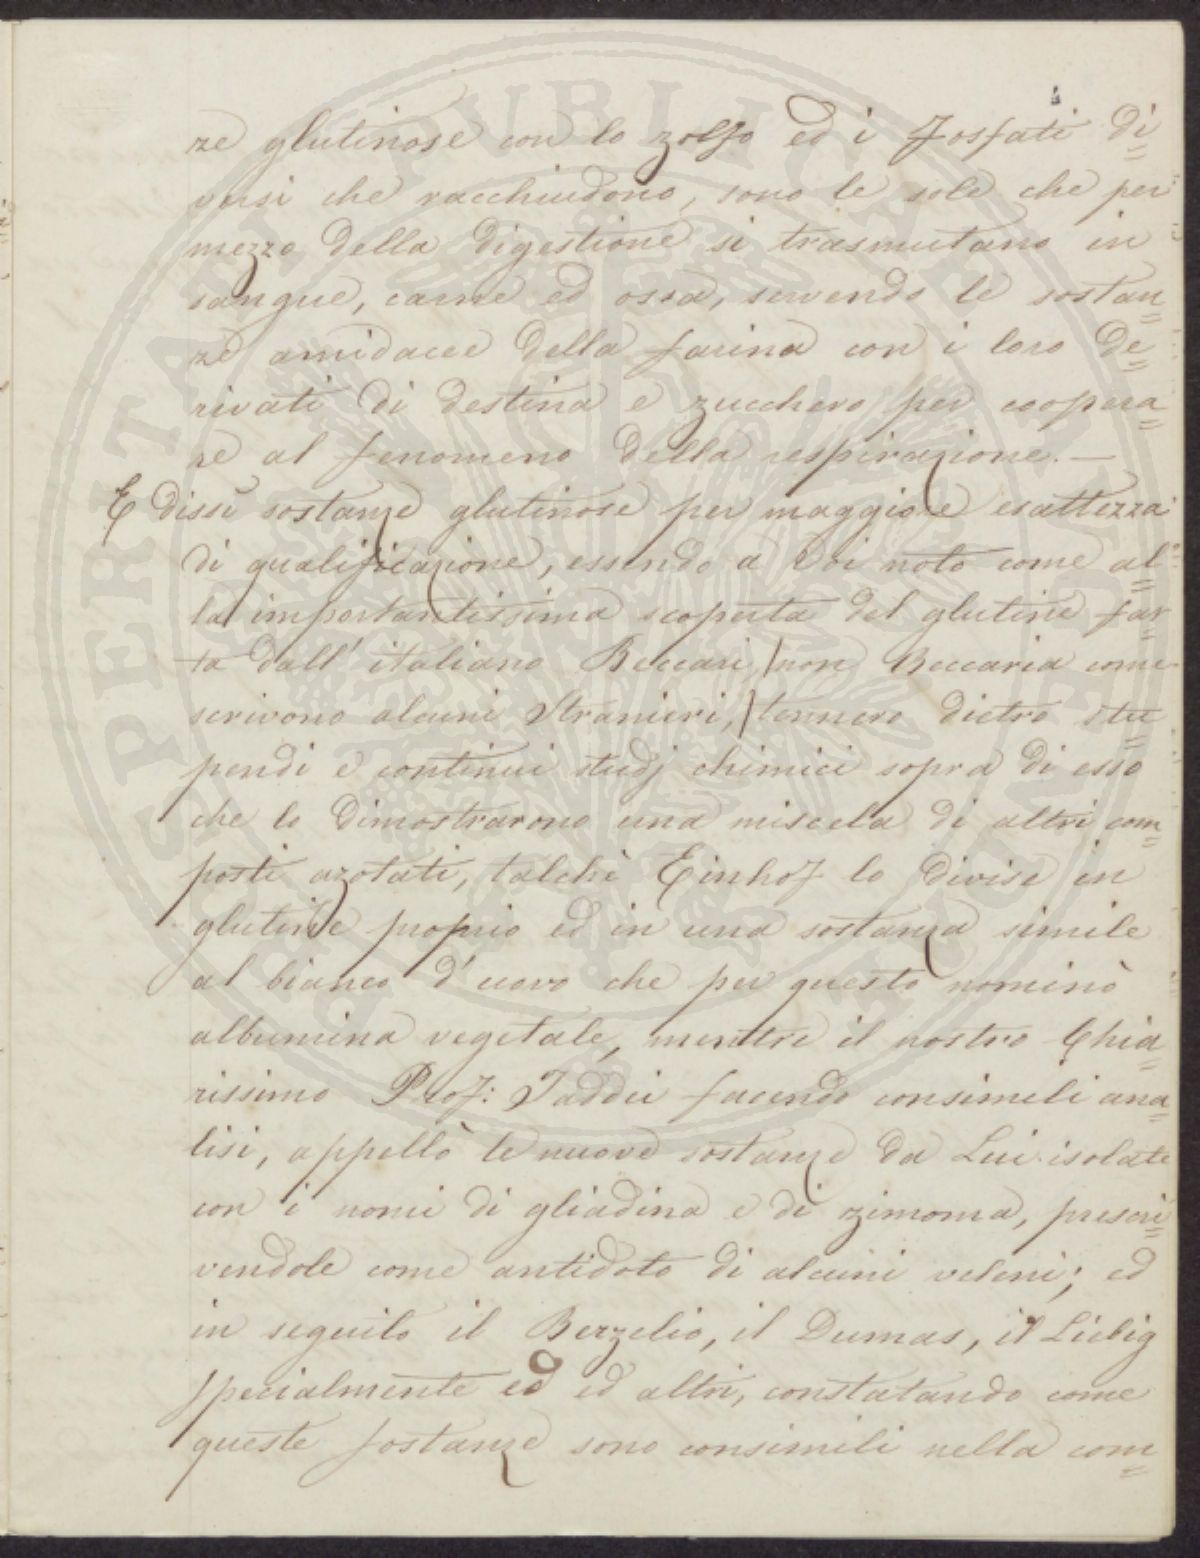 ze glutinose con lo zolfo ed i Fosfati di=
versi che racchiudono, sono le sole che per
mezzo della digestione si trasmutano in
sangue, carne ed ossa, servendo le sostan=
ze amidacee della farina con i loro de=
rivati di destina e zucchero per coopera=
re al fenomeno della respirazione. —
E dissi sostanze glutinose per maggiore esattezza
di qualificazione, essendo a Voi noto come al=
la importantissima scoperta del glutine fat=
ta dall' italiano Beccari, (non Beccaria come
scrivono alcuni Stranieri,) tennero dietro stu=
pendi e continui studj chimici sopra di esso
che lo dimostrarono una miscela di altri com=
posti azotati, talchè Einhof lo divise in
glutine proprio ed in una sostanza simile
al bianco d'uovo che per questo nominò
albumina vegetale, mentre il nostro Chia=
rissimo Prof: Taddei facendo consimili ana=
lisi, appellò le nuove sostanze da Lui isolate
con i nomi di gliadina e di zimoma, prescri=
vendole come antidoto di alcuni veleni; ed
in seguito il Berzelio, il Dumas, il Liebig
specialmente ed ed altri, constatando come
queste sostanze sono consimili nella com=
PROSPERITATI PUBLICAE AUGENDAE